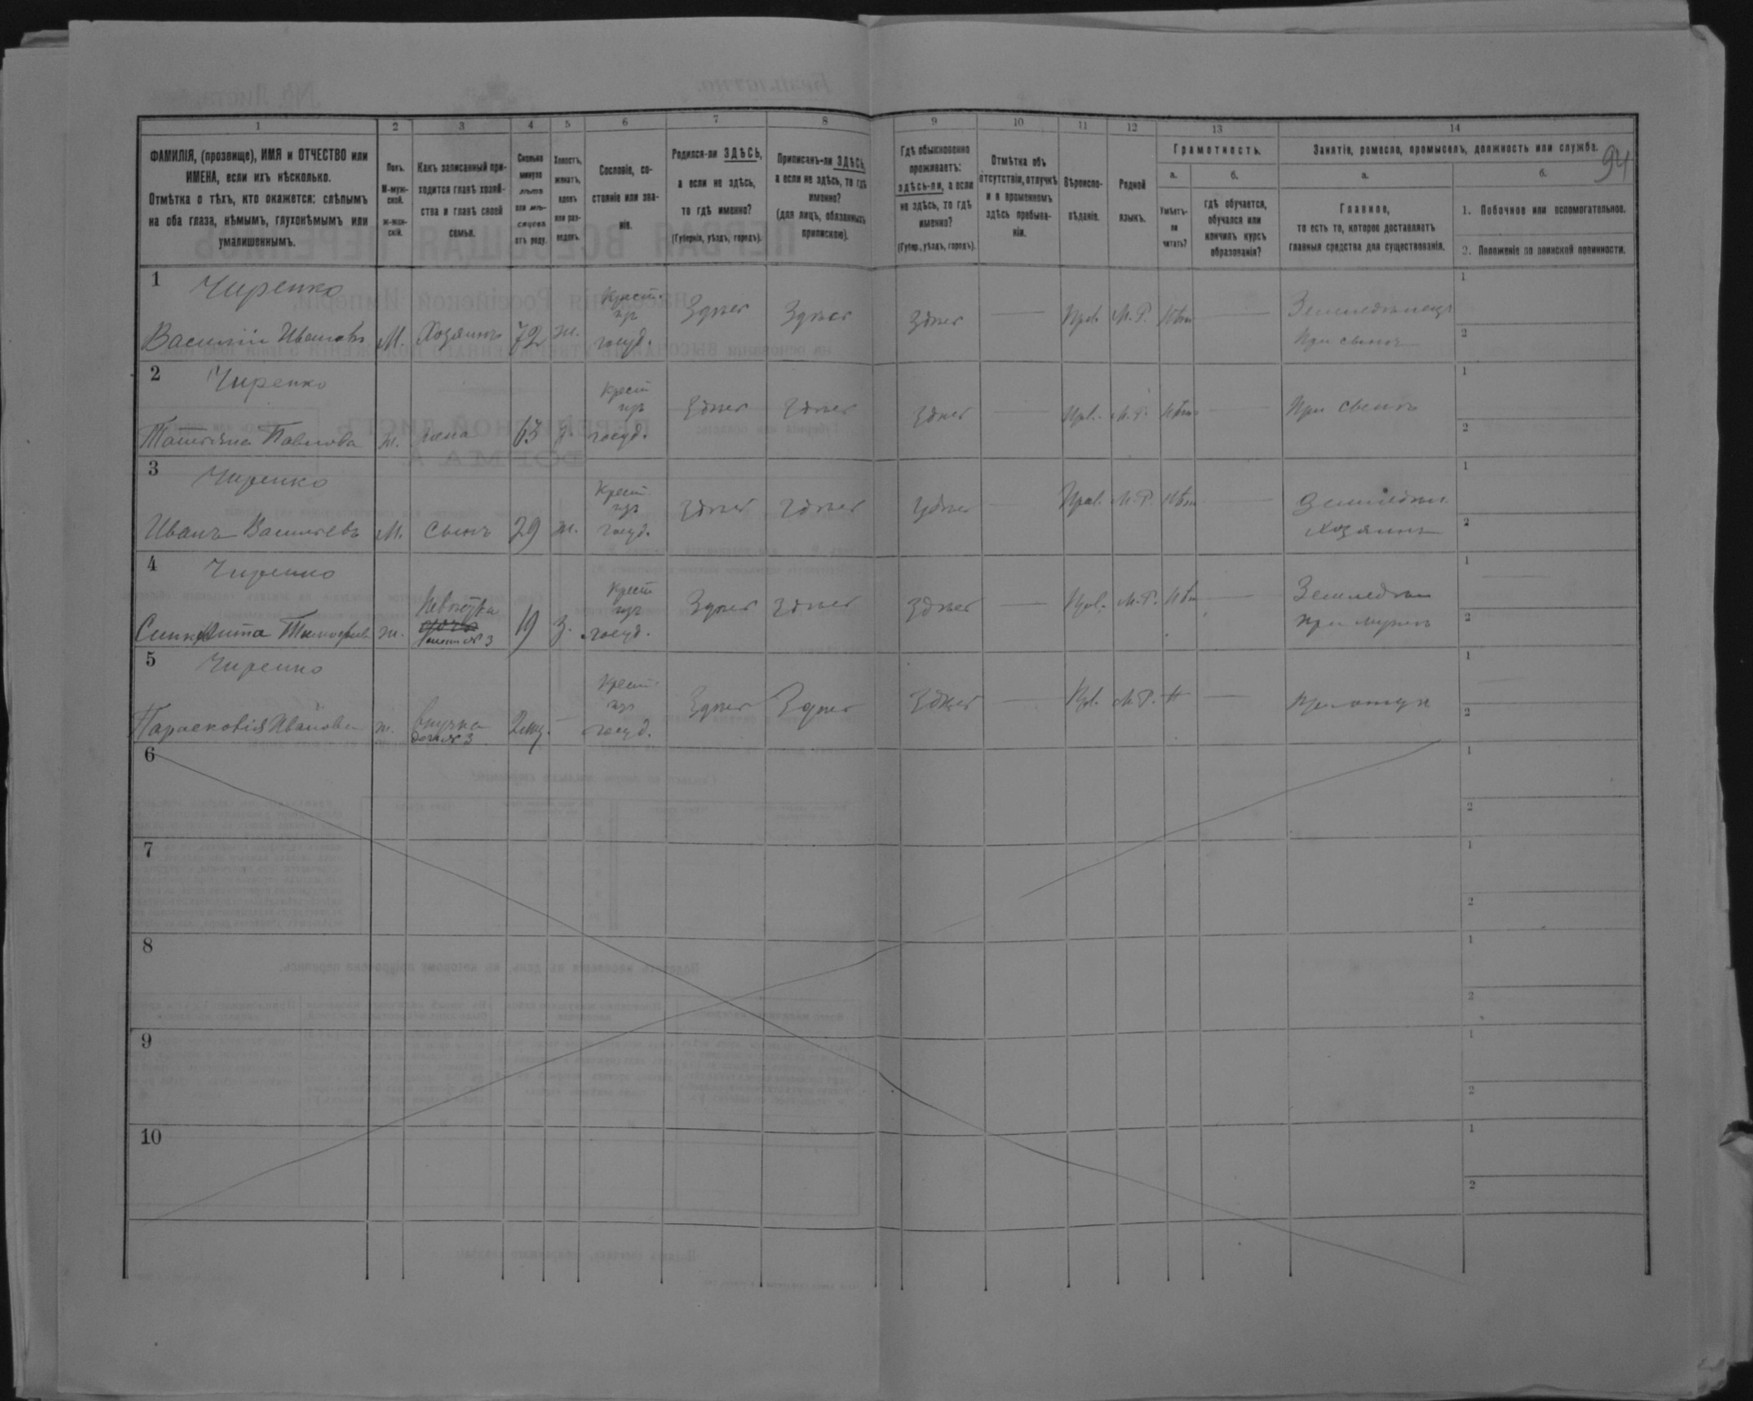 94
1 2 3 4 5 6 7 8 9 10 11 12 13 14
ФАМИЛІЯ, (прозвище), ИМЯ и ОТЧЕСТВО или
ИМЕНА, если ихъ нѣсколько.
Отмѣтка о тѣхъ, кто окажется: слѣпымъ
на оба глаза, нѣмымъ, глухонѣмымъ или
умалишеннымъ.
Полъ.
М-муж-
ской.
ж-жен-
скій.
Какъ записанный при-
ходится главѣ хозяй-
ства и главѣ своей
семьи.
Сколько
минуло
лѣтъ
или мѣ-
сяцевъ
отъ роду.
Холостъ,
женатъ,
вдовъ
или раз-
веденъ.
Сословіе, со-
стояніе или зва-
ніе.
Родился-ли ЗДѢСЬ,
а если не здѣсь,
то гдѣ именно?
(Губернія, уѣздъ, городъ).
Приписанъ-ли ЗДѢСЬ,
а если не здѣсь, то гдѣ
именно?
(для лицъ, обязанныхъ
припискою).
Гдѣ обыкновенно
проживаетъ:
здѣсь-ли, а если
не здѣсь, то гдѣ
именно?
(Губер., уѣздъ, городъ).
Отмѣтка объ
отсутствіи, отлучкѣ
и о временномъ
здѣсь пребыва-
ніи.
Вѣроиспо-
вѣданіе.
Родной
языкъ.
Грамотность.
а.
Умѣетъ-
ли
читать?
б.
гдѣ обучается,
обучался или
кончилъ курсъ
образованія?
Занятіе, ремесло, промыселъ, должность или служба.
а.
Главное,
то есть то, которое доставляетъ
главныя средства для существованія.
б.
1. Побочное или вспомогательное.
2. Положеніе по воинской повинности.
1 Чиренко Крест. 1
изъ Здѣсь Здѣсь Здѣсь — Прав. М.Р. Нѣт — Земледѣлецъ
Василій Ивановъ М. Хозяинъ 72 ж. госуд. При сынѣ 2
2 Чиренко Крест 1
изъ Здѣсь Здѣсь Здѣсь — Прв. М.Р. Нѣт — При сынѣ
Татьяна Павлова ж. жена 63 з. госуд. 2
3 Чиренко Крест 1
изъ Здѣсь Здѣсь Здѣсь — Прав. М.Р. Нѣт — Земледѣл.
Иванъ Васильевъ М. сынъ 29 ж. госуд. Хозяинъ 2
4 Чиренко Невѣстка Крест 1
изъ Здѣсь Здѣсь Здѣсь — Прв. М.Р. Нѣт — Земледѣл
ж. жена № 3 19 з. госуд. при мужѣ 2
5 Чиренко Крест 1
изъ Здѣсь Здѣсь Здѣсь — Прв. М.Р. Н — при отцѣ
Парасковія Иванова ж. внучка 2 мѣ. — госуд. 2
доч. № 3
6 1
2
7 1
2
8 1
2
9 1
2
10 1
2